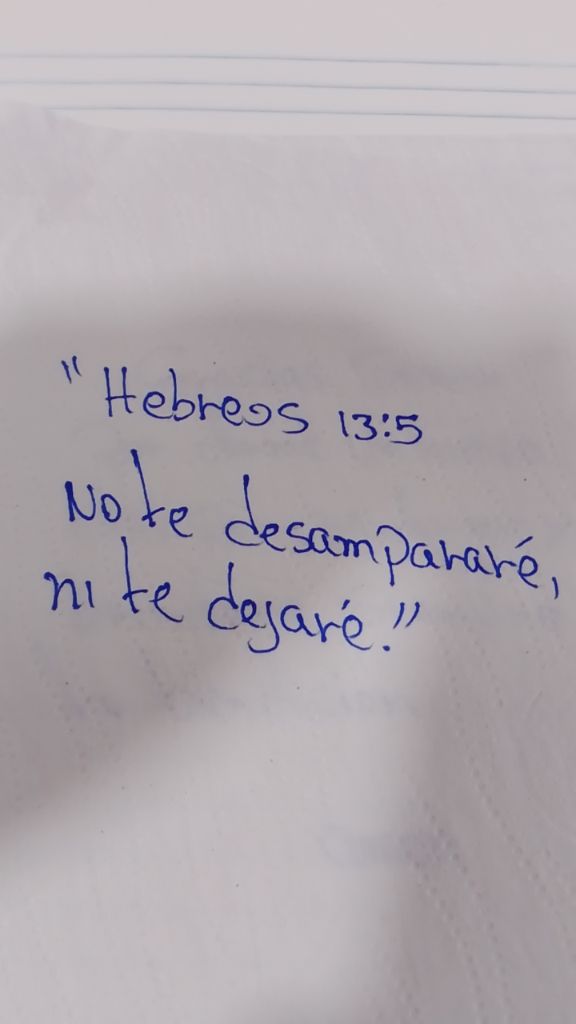 "Hebreos 13:5
No te desampararé,
ni te dejaré."